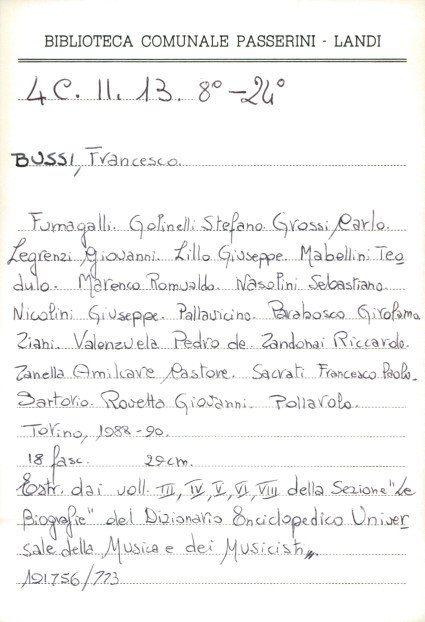 BIBLIOTECA COMUNALE PASSERINI - LANDI
4 C. II. 13. 8° - 24°
BUSSI, Francesco.
Fumagalli. Golinelli Stefano. Grossi, Carlo.
Legrenzi, Giovanni. Lillo Giuseppe. Mabellini Teo
dulo. Marenco Romualdo. Nasolini Sebastiano.
Nicolini Giuseppe. Pallavicino. Parabosco Girolamo
Ziani. Valenzuela Pedro de. Zandonai Riccardo.
Zanella Amilcare Castore. Sacrati Francesco Paolo.
Sartorio. Rovetta Giovanni. Pollarolo.
Torino, 1988-90.
18 fasc. 29 cm.
Estr. dai voll. III, IV, V, VI, VIII della Sezione "Le
Biografie" del Dizionario Enciclopedico Univer
sale della Musica e dei Musicisti.
191756/773